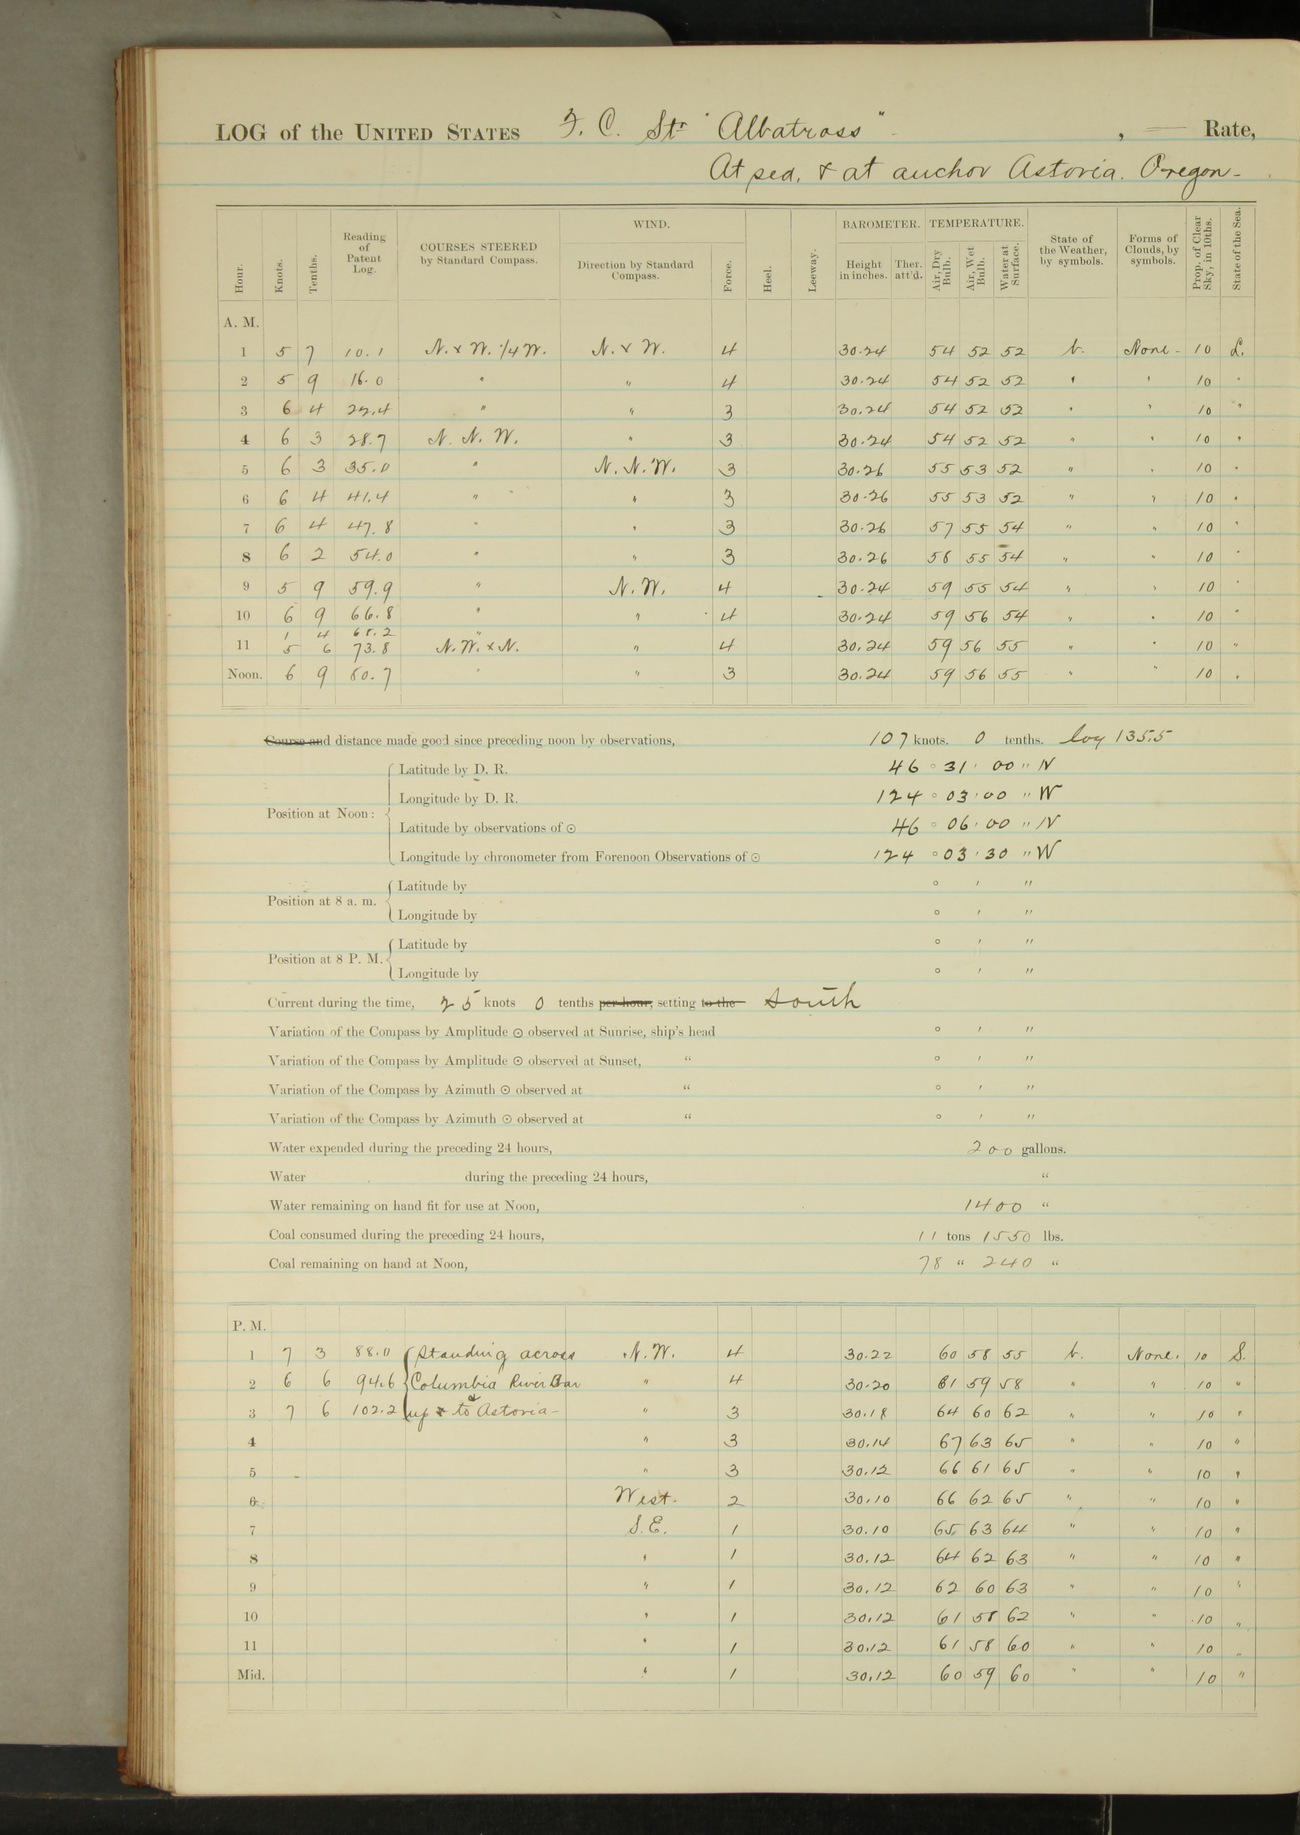 LOG of the UNITED STATES F. C. Str "Albatross" , — Rate,
At sea, & at anchor Astoria. Oregon-
Hour. Knots. Tenths. Reading of Patent Log. COURSES STEERED by Standard Compass. WIND. Direction by Standard Compass. Force. Heel. Leeway. BAROMETER. Height in inches. Ther. att'd. TEMPERATURE. Air, Dry Bulb. Air, Wet Bulb. Water at Surface. State of the Weather, by symbols. Forms of Clouds, by symbols. Prop. of Clear Sky, in 10ths. State of the Sea.
A. M.
1 5 7 10.1 N. x W. 1/4 W. N. x W. 4 30.24 54 52 52 b. None- 10 L.
2 5 9 16.0 " " 4 30.24 54 52 52 " " 10 "
3 6 4 22.4 " " 3 30.24 54 52 52 " " 10 "
4 6 3 28.7 N. N. W. " 3 30.24 54 52 52 " " 10 "
5 6 3 35.0 " N. N. W. 3 30.26 55 53 52 " " 10 "
6 6 4 41.4 " " 3 30.26 55 53 52 " " 10 "
7 6 4 47.8 " " 3 30.26 57 55 54 " " 10 "
8 6 2 54.0 " " 3 30.26 58 55 54 " " 10 "
9 5 9 59.9 " N. W. 4 30.24 59 55 54 " " 10 "
10 6 9 66.8 " " 4 30.24 59 56 54 " " 10 "
1 4 68.2 "
11 5 6 73.8 N. W. x N. " 4 30.24 59 56 55 " " 10 "
Noon. 6 9 80.7 " " 3 30.24 59 56 55 " " 10 "
Course and distance made good since preceding noon by observations, 107 knots. 0 tenths. log 135.5
Latitude by D. R. 46 ° 31 ' 00 " N
Longitude by D. R. 124 ° 03 ' 00 " W
Position at Noon:
Latitude by observations of ☉ 46 ° 06 ' 00 " N
Longitude by chronometer from Forenoon Observations of ☉ 124 ° 03 ' 30 " W
Latitude by ° ' "
Position at 8 a. m.
Longitude by ° ' "
Latitude by ° ' "
Position at 8 P. M.
Longitude by ° ' "
Current during the time, 25 knots 0 tenths per hour, setting to the South
Variation of the Compass by Amplitude ☉ observed at Sunrise, ship's head ° ' "
Variation of the Compass by Amplitude ☉ observed at Sunset, " ° ' "
Variation of the Compass by Azimuth ☉ observed at " ° ' "
Variation of the Compass by Azimuth ☉ observed at " ° ' "
Water expended during the preceding 24 hours, 200 gallons.
Water during the preceding 24 hours, "
Water remaining on hand fit for use at Noon, 1400 "
Coal consumed during the preceding 24 hours, 11 tons 1550 lbs.
Coal remaining on hand at Noon, 78 " 240 "
P. M.
1 7 3 88.0 Standing across N. W. 4 30.22 60 58 55 b. None. 10 S.
2 6 6 94.6 Columbia River Bar " 4 30.20 61 59 58 " " 10 "
3 7 6 102.2 up & to Astoria- " 3 30.18 64 60 62 " " 10 "
4 " 3 30.14 67 63 65 " " 10 "
5 " 3 30.12 66 61 65 " " 10 "
6 West. 2 30.10 66 62 65 " " 10 "
7 S. E. 1 30.10 65 63 64 " " 10 "
8 " 1 30.12 64 62 63 " " 10 "
9 " 1 30.12 62 60 63 " " 10 "
10 " 1 30.12 61 58 62 " " 10 "
11 " 1 30.12 61 58 60 " " 10 "
Mid. " 1 30.12 60 59 60 " " 10 "